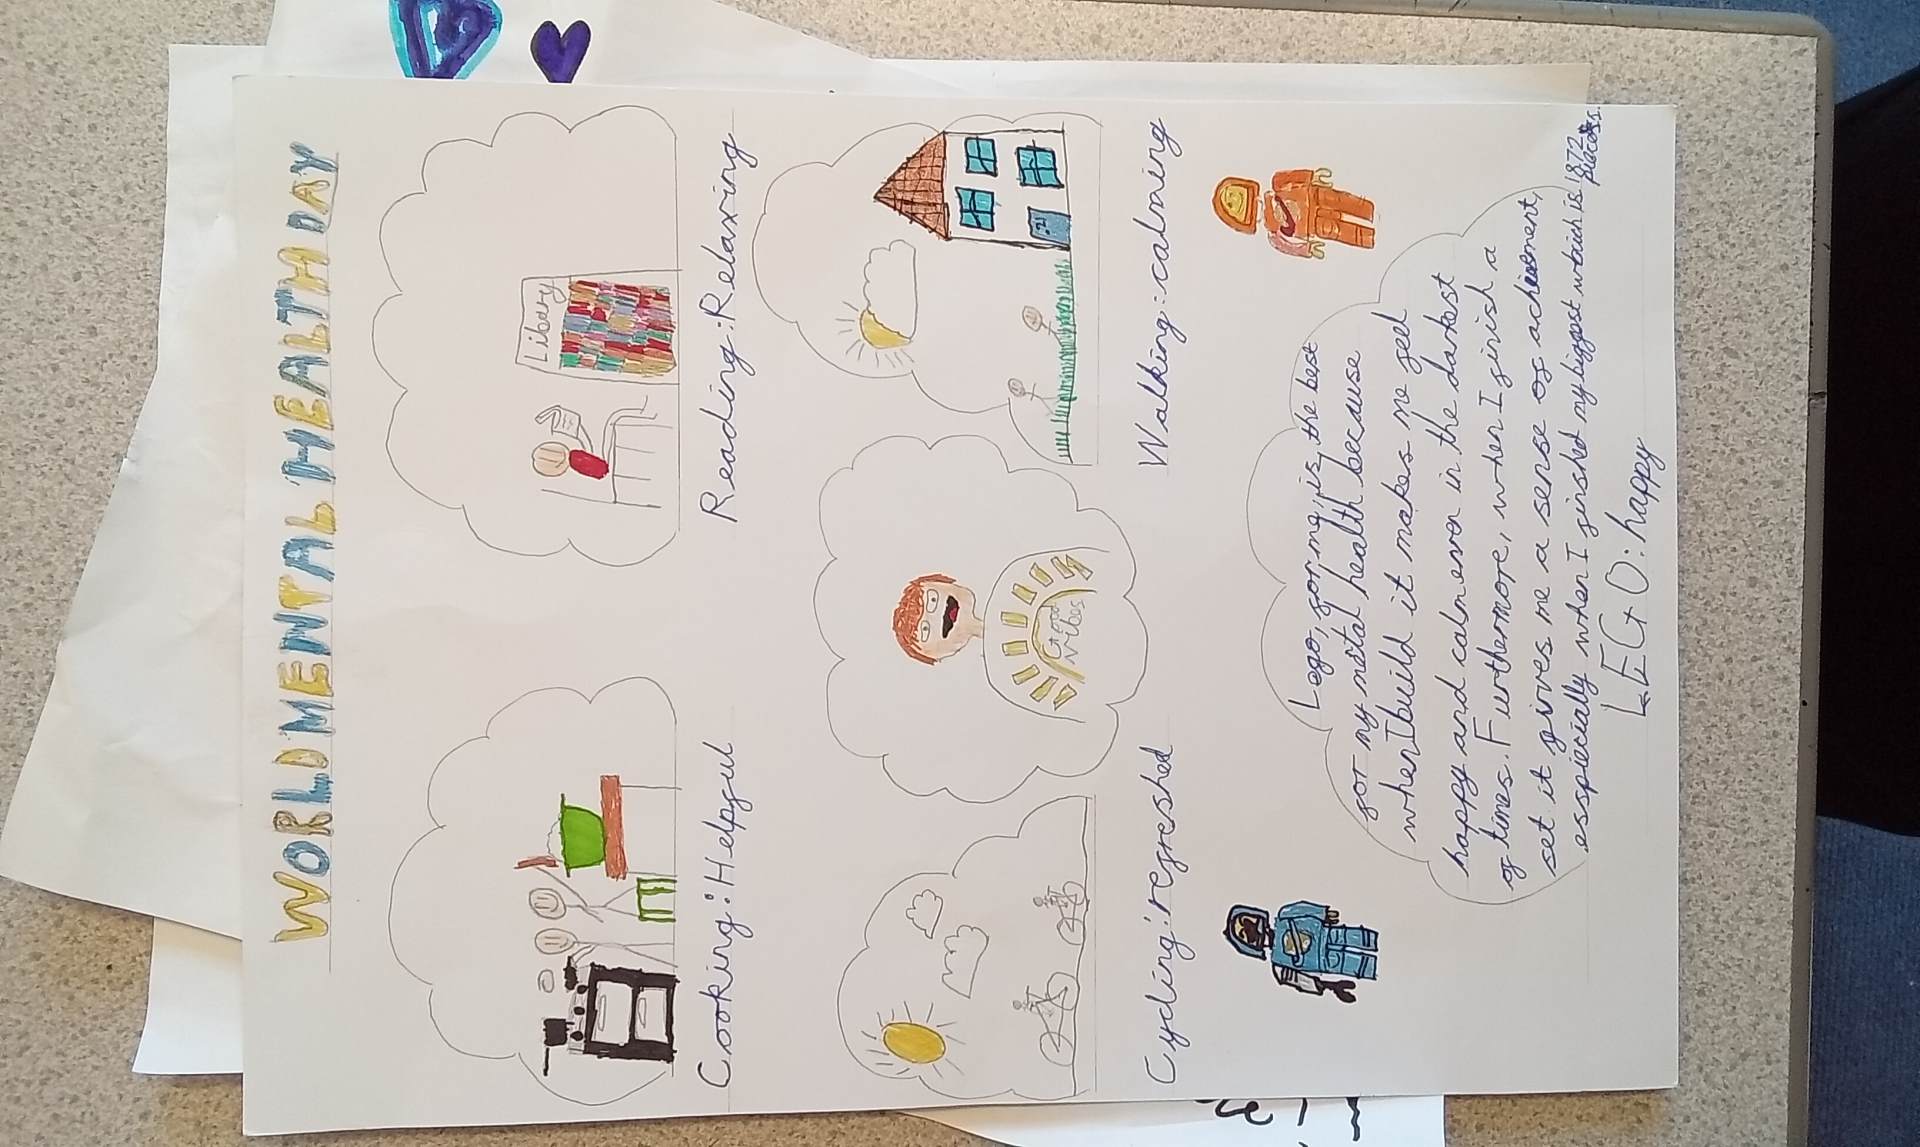 WORLD MENTAL HEALTH DAY
Libary
Cooking: Helpful
Reading: Relaxing
Good
Vibes
Cycling: refreshed
Walking: calming
Lego, for me, is the best
for my metal health because
when I build it makes me feel
happy and calm even in the darkest
of times. Furthermore, when I finish a
set it gives me a sense of acheivment,
esspicially when I finished my biggest which is 1872
pieces.
LEGO: happy